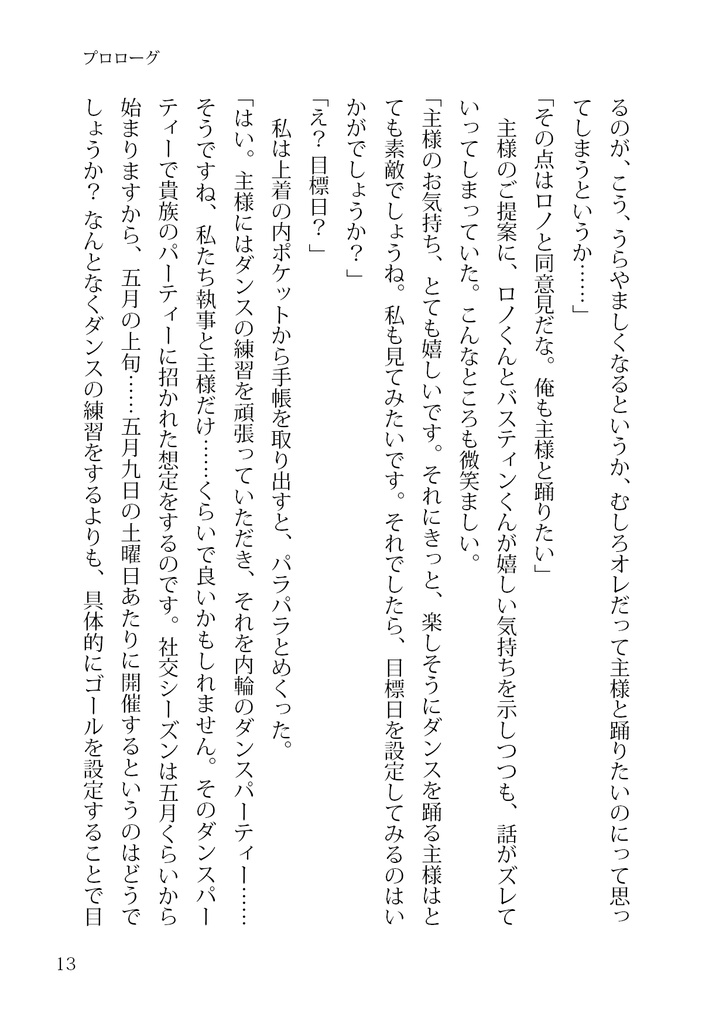 プロローグ
るのが、こう、うらやましくなるというか、むしろオレだって主様と踊りたいのにって思っ
てしまうというか……」
「その点はロノと同意見だな。俺も主様と踊りたい」
　主様のご提案に、ロノくんとバスティンくんが嬉しい気持ちを示しつつも、話がズレて
いってしまっていた。こんなところも微笑ましい。
「主様のお気持ち、とても嬉しいです。それにきっと、楽しそうにダンスを踊る主様はと
ても素敵でしょうね。私も見てみたいです。それでしたら、目標日を設定してみるのはい
かがでしょうか？」
「え？ 目標日？」
　私は上着の内ポケットから手帳を取り出すと、パラパラとめくった。
「はい。主様にはダンスの練習を頑張っていただき、それを内輪のダンスパーティー……
そうですね、私たち執事と主様だけ……くらいで良いかもしれません。そのダンスパー
ティーで貴族のパーティーに招かれた想定をするのです。社交シーズンは五月くらいから
始まりますから、五月の上旬……五月九日の土曜日あたりに開催するというのはどうで
しょうか？ なんとなくダンスの練習をするよりも、具体的にゴールを設定することで目
13